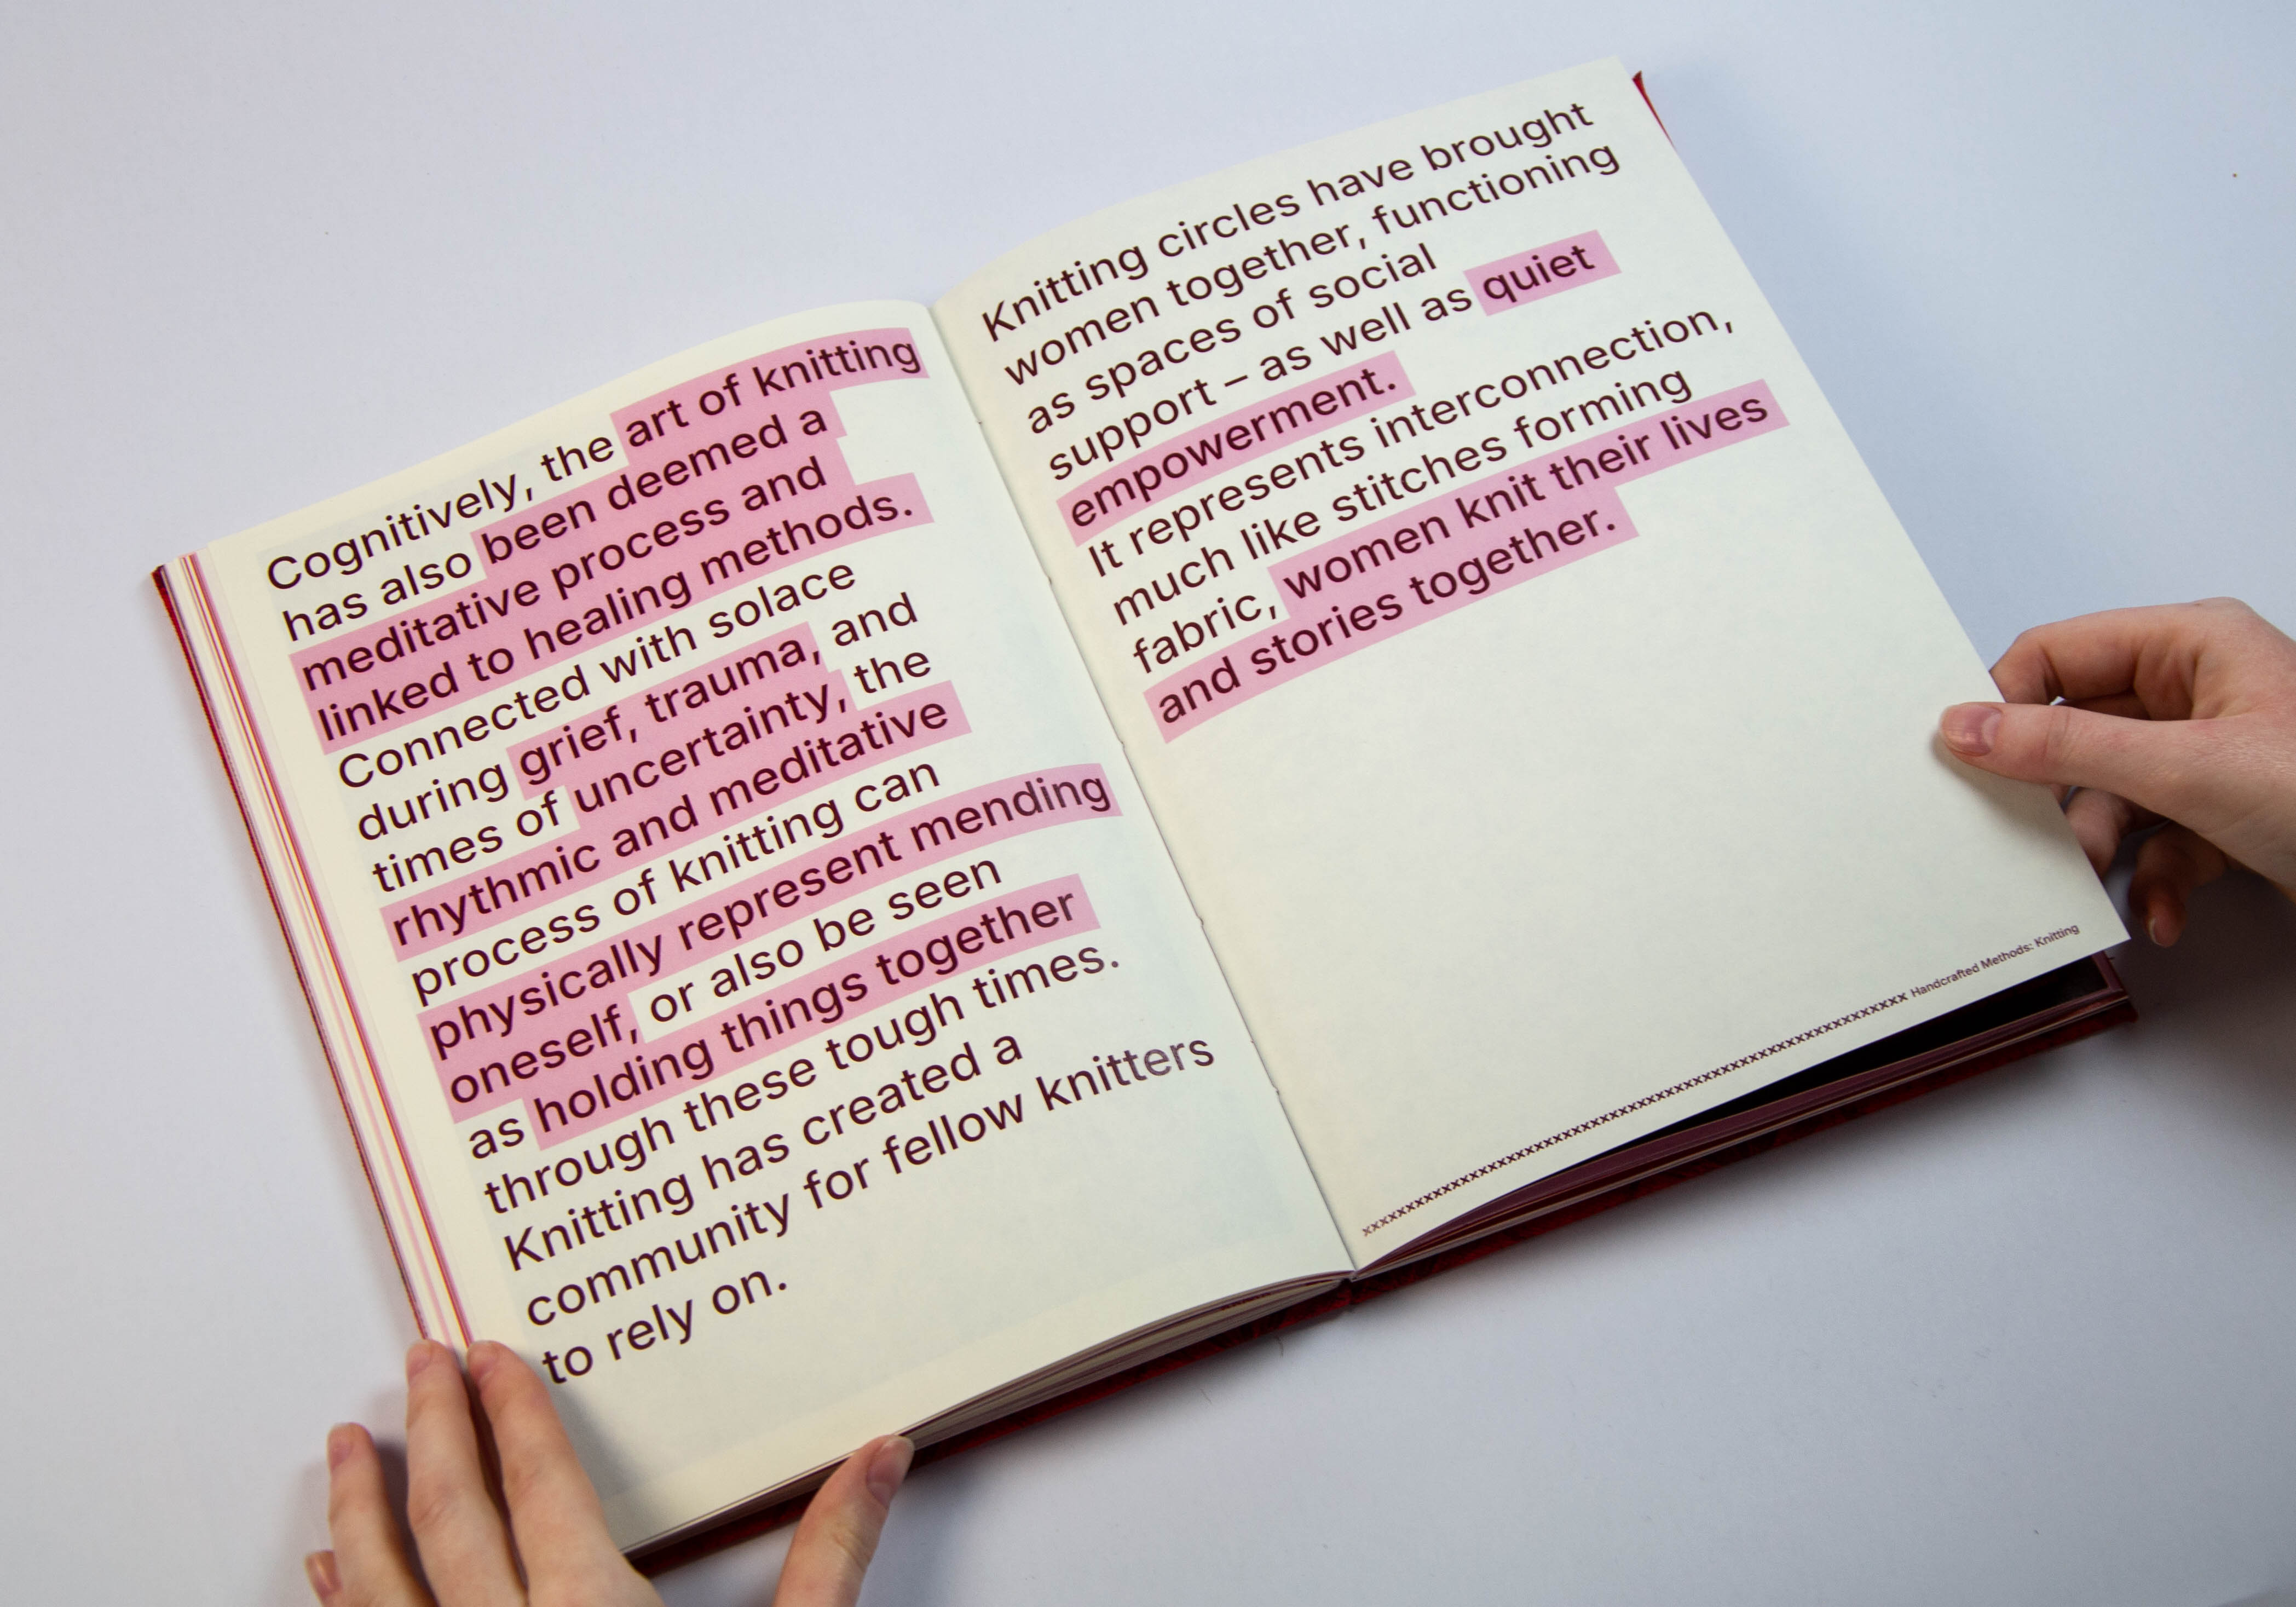 Cognitively, the art of knitting
has also been deemed a
meditative process and
linked to healing methods.
Connected with solace
during grief, trauma, and
times of uncertainty, the
rhythmic and meditative
process of knitting can
physically represent mending
oneself, or also be seen
as holding things together
through these tough times.
Knitting has created a
community for fellow knitters
to rely on.
Knitting circles have brought
women together, functioning
as spaces of social
support – as well as quiet
empowerment.
It represents interconnection,
much like stitches forming
fabric, women knit their lives
and stories together.
xxxxxxxxxxxxxxxxxxxxxxxxxxxxxxxxxxxxxxxxxxxxxxxxxxxxxxxxxxxxxxxx Handcrafted Methods: Knitting